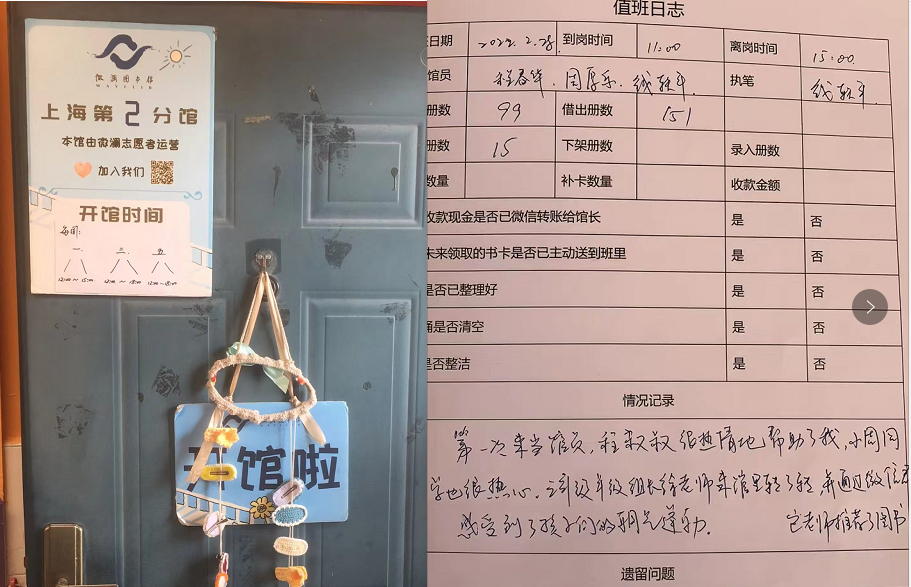 微澜图书馆
上海第2分馆
本馆由微澜志愿者运营
加入我们
开馆时间
每周:
一 三 五
开馆啦
值班日志
日期 2022.2.28 到岗时间 11:00 离岗时间 15:00
馆员 程春华、周厚乐、线轶平 执笔 线轶平
册数 99 借出册数 151
册数 15 下架册数 录入册数
数量 补卡数量 收款金额
收款现金是否已微信转账给馆长 是 否
未来领取的书卡是否已主动送到班里 是 否
是否已整理好 是 否
桶是否清空 是 否
是否整洁 是 否
情况记录
第一次来当馆员,程叔叔很热情地帮助了我,小周同
学也很热心。年级组长徐老师来馆里转了转,并通过微信
感受到了孩子们的朝气蓬勃。 老师推荐了图书
遗留问题